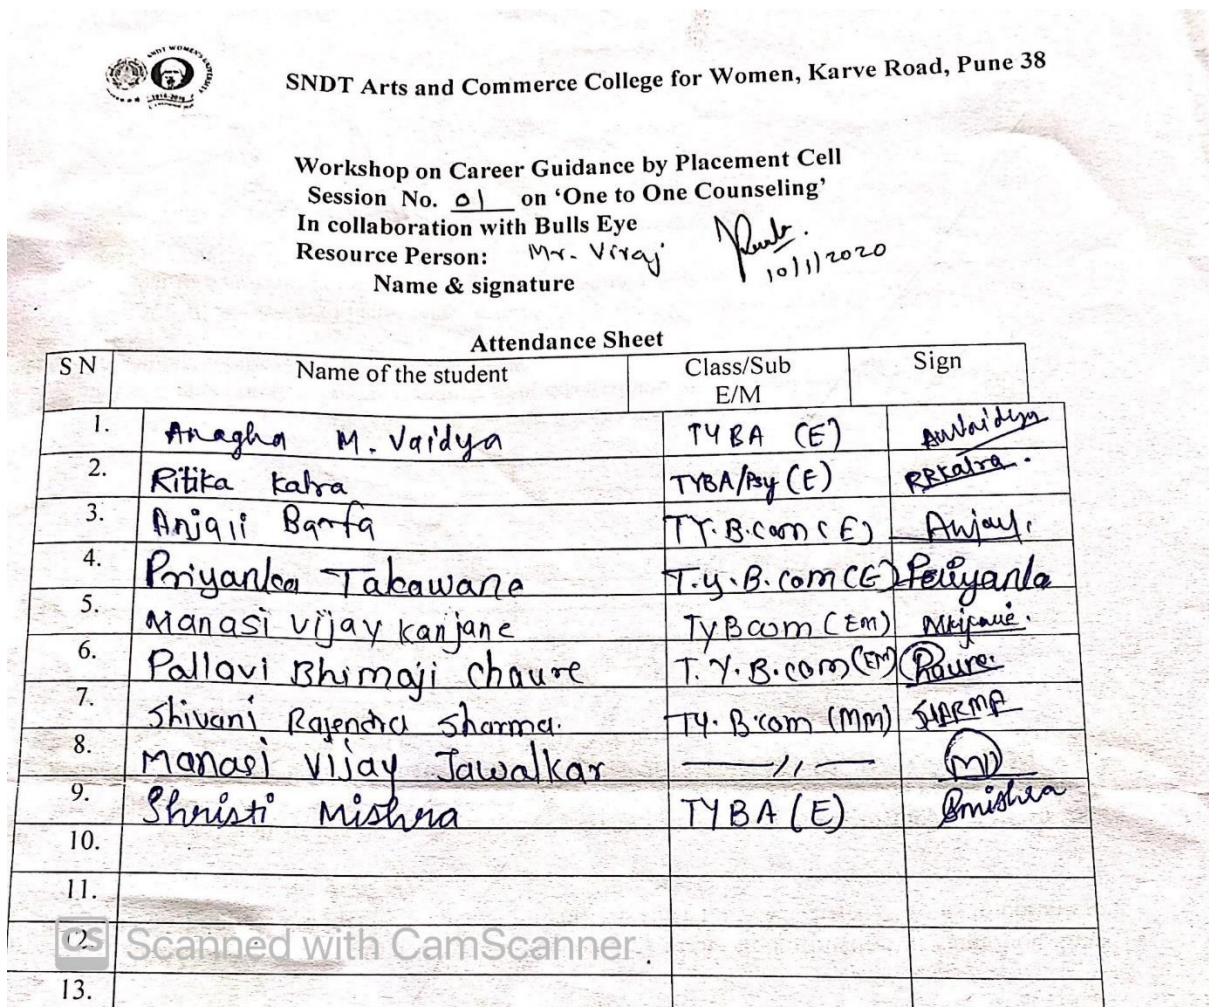 SNDT WOMEN'S UNIVERSITY
1916-2016
SNDT Arts and Commerce College for Women, Karve Road, Pune 38
Workshop on Career Guidance by Placement Cell
Session No. 01 on ‘One to One Counseling’
In collaboration with Bulls Eye
Resource Person: Mr. Viraj
10/1/2020
Name & signature
Attendance Sheet
S N Name of the student Class/Sub E/M Sign
1. Anagha M. Vaidya TYBA (E) AMVaidya
2. Ritika Kalra TYBA/Psy (E) RRKalra.
3. Anjali Barfa TY.B.com (E) Anjali
4. Priyanka Takawane T.y.B.com (E) Priyanka
5. Manasi vijay kanjane TyBcom (EM)
6. Pallavi Bhimaji chaure T.Y.B.com (EM)
7. Shivani Rajendra Sharma. TY.B.com (MM) SHARMA
8. Manasi Vijay Jawalkar —〃— MJ
9. Shristi Mishra TYBA (E) Smishra
10.
11.
12.
13.
CS Scanned with CamScanner